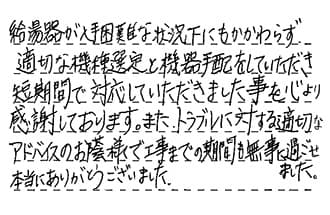 給湯器が入手困難な状況下にもかかわらず
適切な機種選定と機器手配をしていただき
短期間で対応していただきました事を心より
感謝しております。また、トラブルに対する適切な
アドバイスのお蔭様で工事までの期間も無事に過ごせ
ました。
本当にありがとうございました。